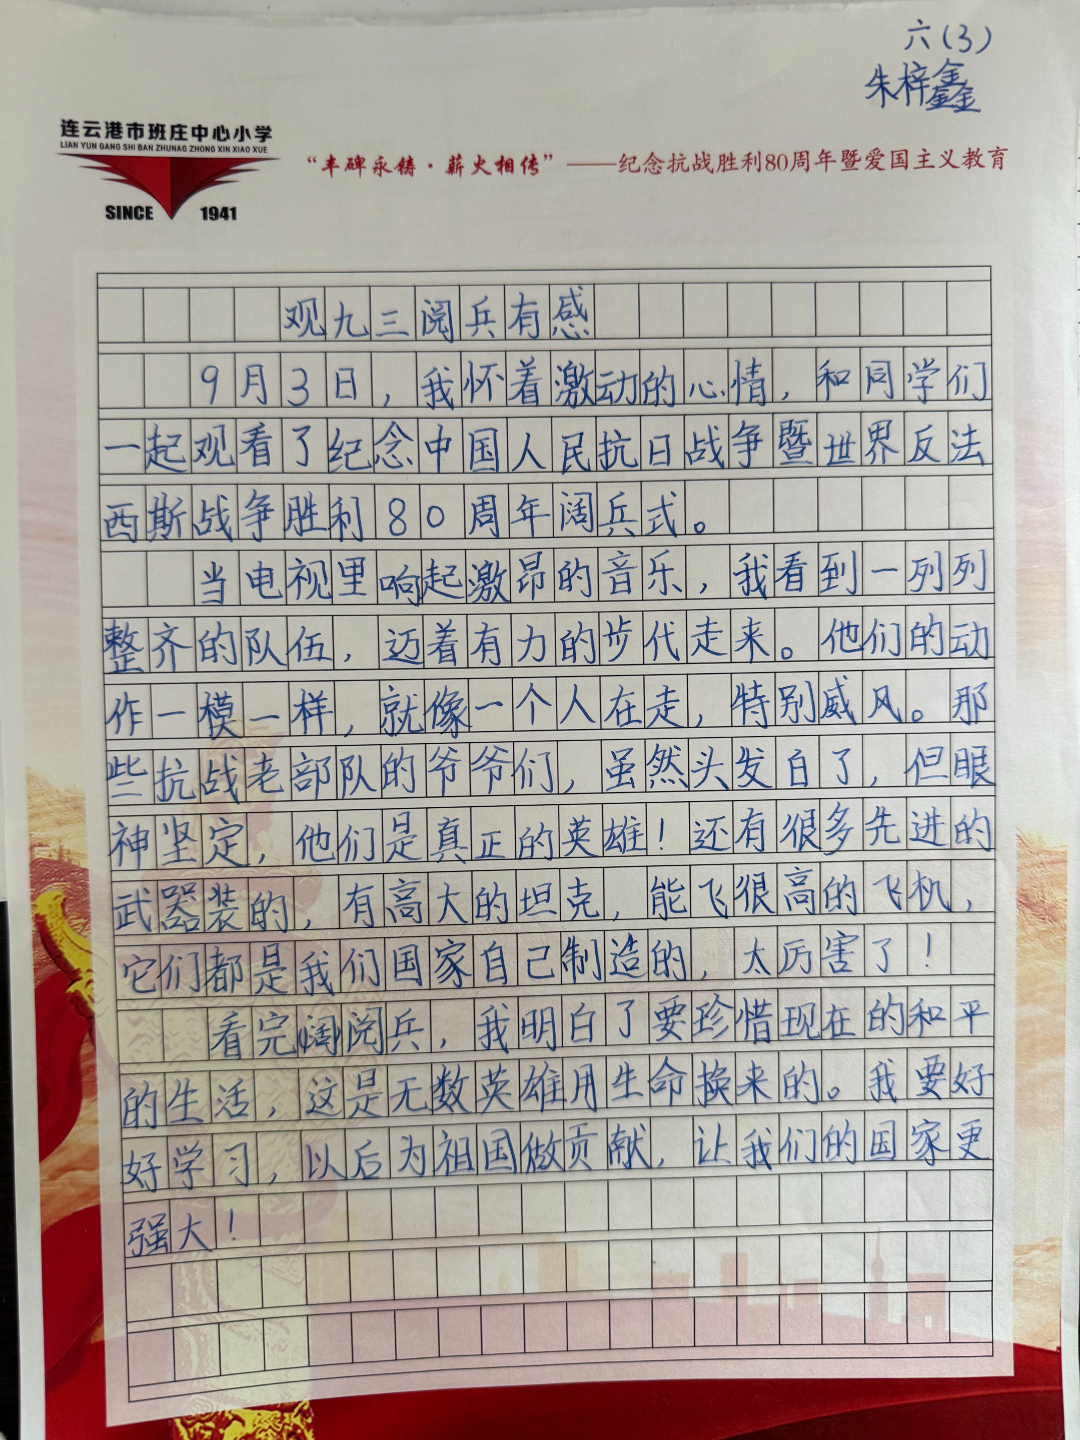 六(3)
朱梓鑫
连云港市班庄中心小学
LIAN YUN GANG SHI BAN ZHUNAG ZHONG XIN XIAO XUE
SINCE 1941
“丰碑永铸·薪火相传”——纪念抗战胜利80周年暨爱国主义教育
观九三阅兵有感
9月3日，我怀着激动的心情，和同学们
一起观看了纪念中国人民抗日战争暨世界反法
西斯战争胜利80周年阔兵式。
当电视里响起激昂的音乐，我看到一列列
整齐的队伍，迈着有力的步代走来。他们的动
作一模一样，就像一个人在走，特别威风。那
些抗战老部队的爷爷们，虽然头发白了，但眼
神坚定，他们是真正的英雄！还有很多先进的
武器装的，有高大的坦克，能飞很高的飞机，
它们都是我们国家自己制造的，太厉害了！
看完阅兵，我明白了要珍惜现在的和平
的生活，这是无数英雄用生命换来的。我要好
好学习，以后为祖国做贡献，让我们的国家更
强大！